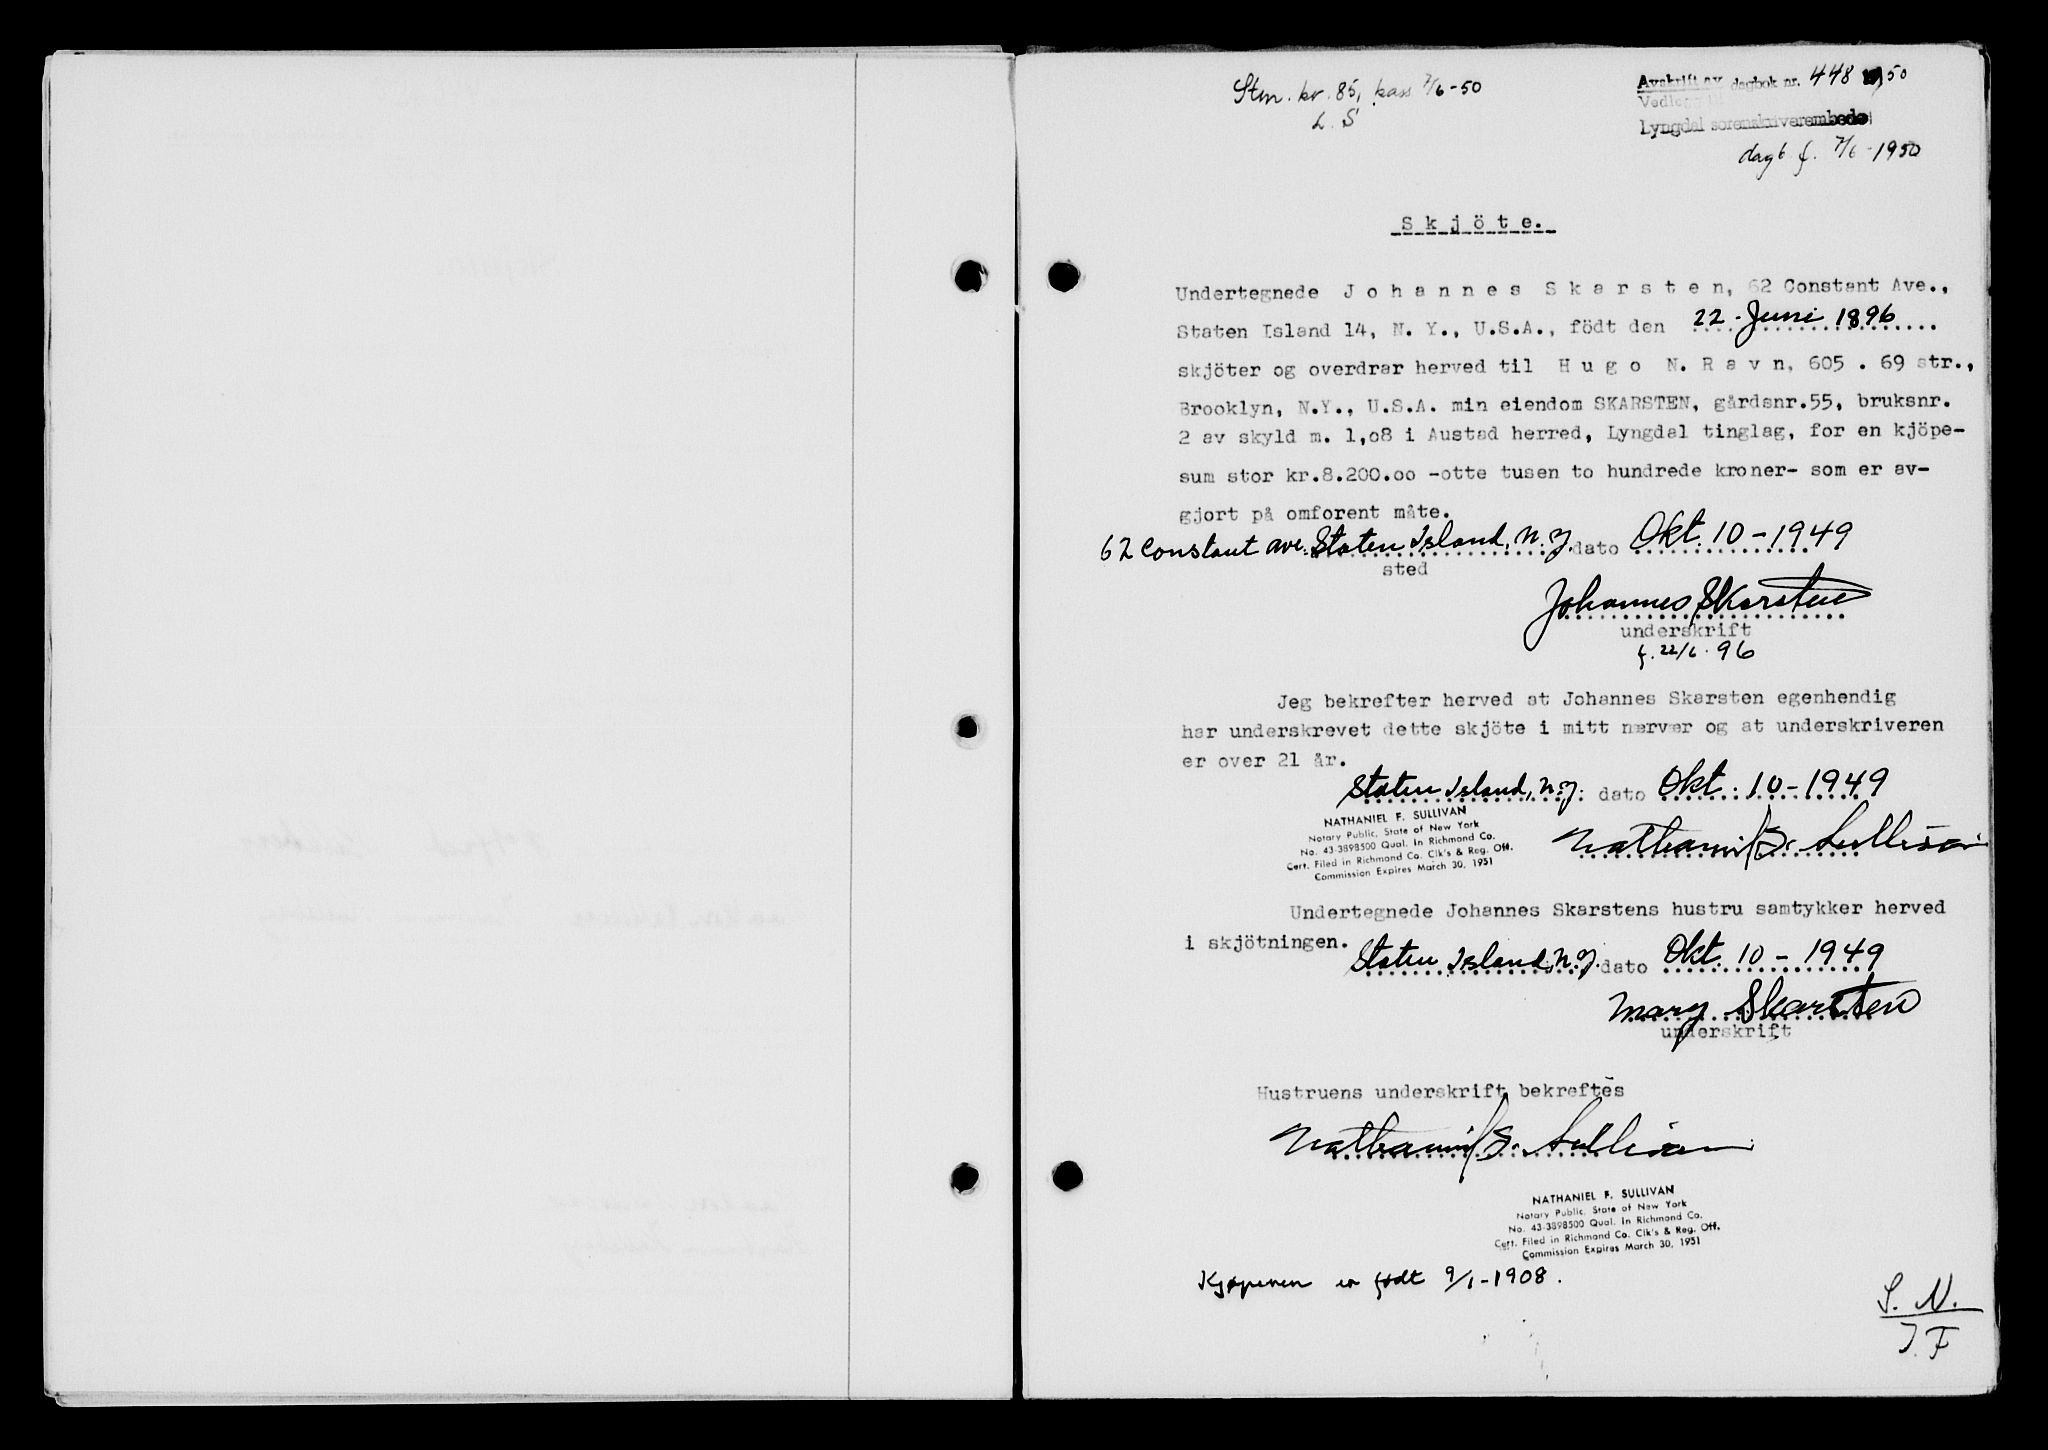 Stm. kr. 85, kass 7/6-50
L. S
Avskrift av dagbok nr. 448 1950
Vedlegg til
Lyngdal sorenskriverembede
dagb f. 7/6-1950
S k j ö t e .
Undertegnede J o h a n n e s S k a r s t e n, 62 Constant Ave.,
Staten Island 14, N. Y., U.S.A., födt den 22. Juni 1896
skjöter og overdrar herved til H u g o N. R a v n, 605 . 69 str.,
Brooklyn, N.Y., U.S.A. min eiendom SKARSTEN, gårdsnr.55, bruksnr.
2 av skyld m. 1,o8 i Austad herred, Lyngdal tinglag, for en kjöpe-
sum stor kr.8.200.oo -otte tusen to hundrede kroner- som er av-
gjort på omforent måte.
62 Constant ave. Staten Island, N.Y. dato Okt. 10-1949
sted
Johannes Skarsten
underskrift
f. 22/6. 96
Jeg bekrefter herved at Johannes Skarsten egenhendig
har underskrevet dette skjöte i mitt nærvær og at underskriveren
er over 21 år.
Staten Island, N.Y. dato Okt. 10-1949
NATHANIEL F. SULLIVAN
Notary Public, State of New York
No. 43-3898500 Qual. in Richmond Co.
Cert. Filed in Richmond Co. Clk's & Reg. Off.
Commission Expires March 30, 1951
Nathaniel F. Sullivan
Undertegnede Johannes Skarstens hustru samtykker herved
i skjötningen.
Staten Island, N.Y. dato Okt. 10-1949
Mary Skarsten
underskrift
Hustruens underskrift bekreftes
Nathaniel F. Sullivan
NATHANIEL F. SULLIVAN
Notary Public, State of New York
No. 43-3898500 Qual. in Richmond Co.
Cert. Filed in Richmond Co. Clk's & Reg. Off.
Commission Expires March 30, 1951
Kjøperen er født 9/1-1908.
S. N.
J. F